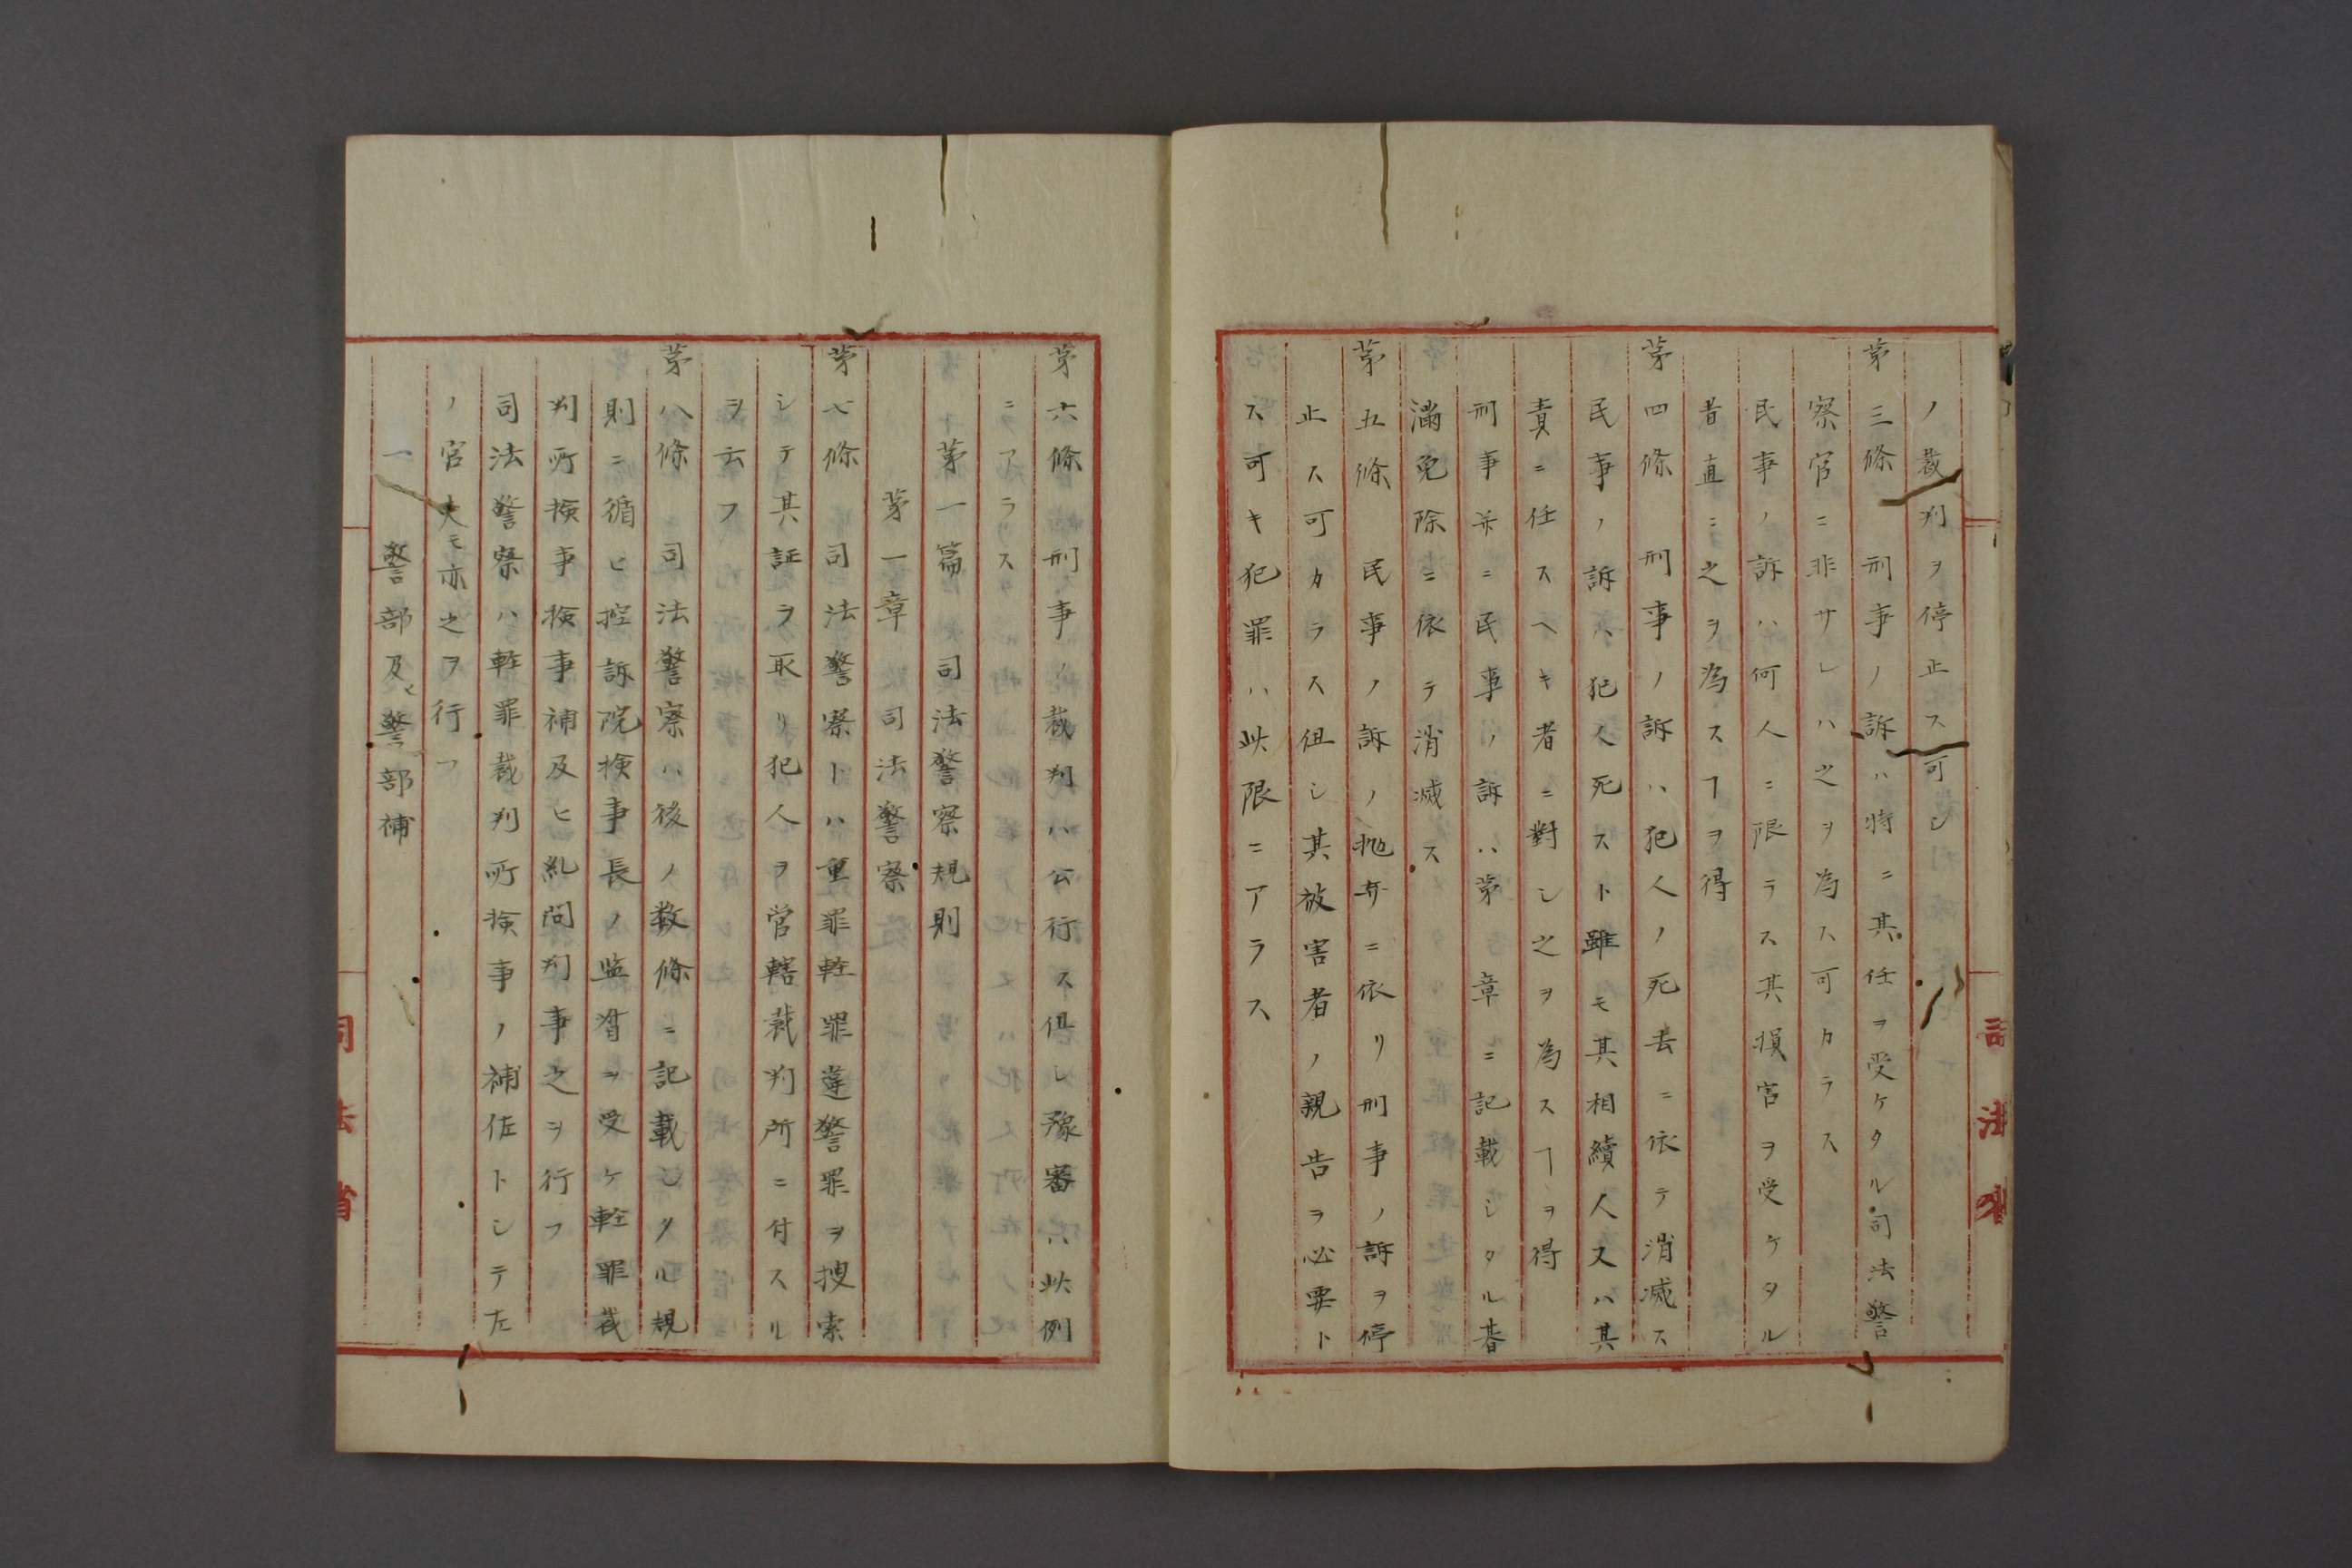 ノ裁判ヲ停止ス可シ
第三條　刑事ノ訴ハ特ニ其任ヲ受ケタル司法警
察官ニ非サレハ之ヲ為ス可カラス
民事ノ訴ハ何人ニ限ラス其損害ヲ受ケタル
者直ニ之ヲ為スヿヲ得
第四條　刑事ノ訴ハ犯人ノ死去ニ依テ消滅ス
民事ノ訴ハ犯人死スト雖モ其相續人又ハ其
責ニ任スヘキ者ニ對シ之ヲ為スヿヲ得
刑事并ニ民事ノ訴ハ第　章ニ記載シタル期
滿免除ニ依テ消滅ス
第五條　民事ノ訴ノ抛弃ニ依リ刑事ノ訴ヲ停
止ス可カラス但シ其被害者ノ親告ヲ必要ト
ス可キ犯罪ハ此限ニアラス
第六條　刑事ノ裁判ハ公行ス但シ豫審ハ此例
ニアラス
第一篇　司法警察規則
第一章　司法警察
第七條　司法警察トハ重罪輕罪違警罪ヲ捜索
シテ其証ヲ取リ犯人ヲ管轄裁判所ニ付スル
ヲ云フ
第八條　司法警察ハ後ノ数條ニ記載シタル規
則ニ循ヒ控訴院検事長ノ監督ヲ受ケ輕罪裁
判所検事検事補及ヒ糺問判事之ヲ行フ
司法警察ハ輕罪裁判所検事ノ補佐トシテ左
ノ官丈モ亦之ヲ行フ
一　警部及ヒ警部補
司法省